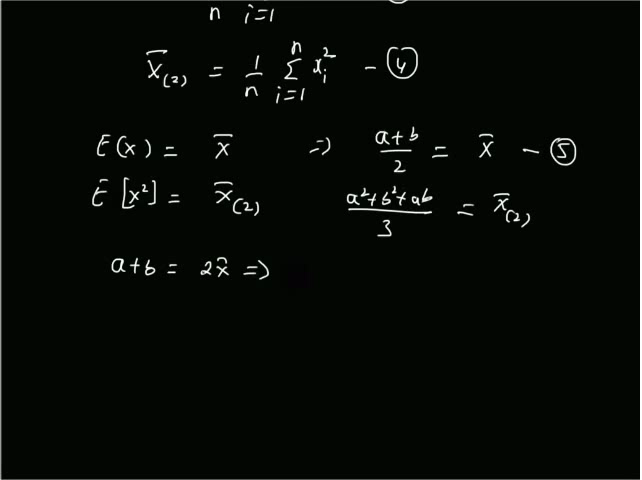 n i=1
x̄(2) = 1/n Σ(i=1 to n) xᵢ² - ④
E(x) = x̄ ⇒ (a+b)/2 = x̄ - ⑤
E[x²] = x̄(2) (a²+b²+ab)/3 = x̄(2)
a+b = 2x̄ ⇒